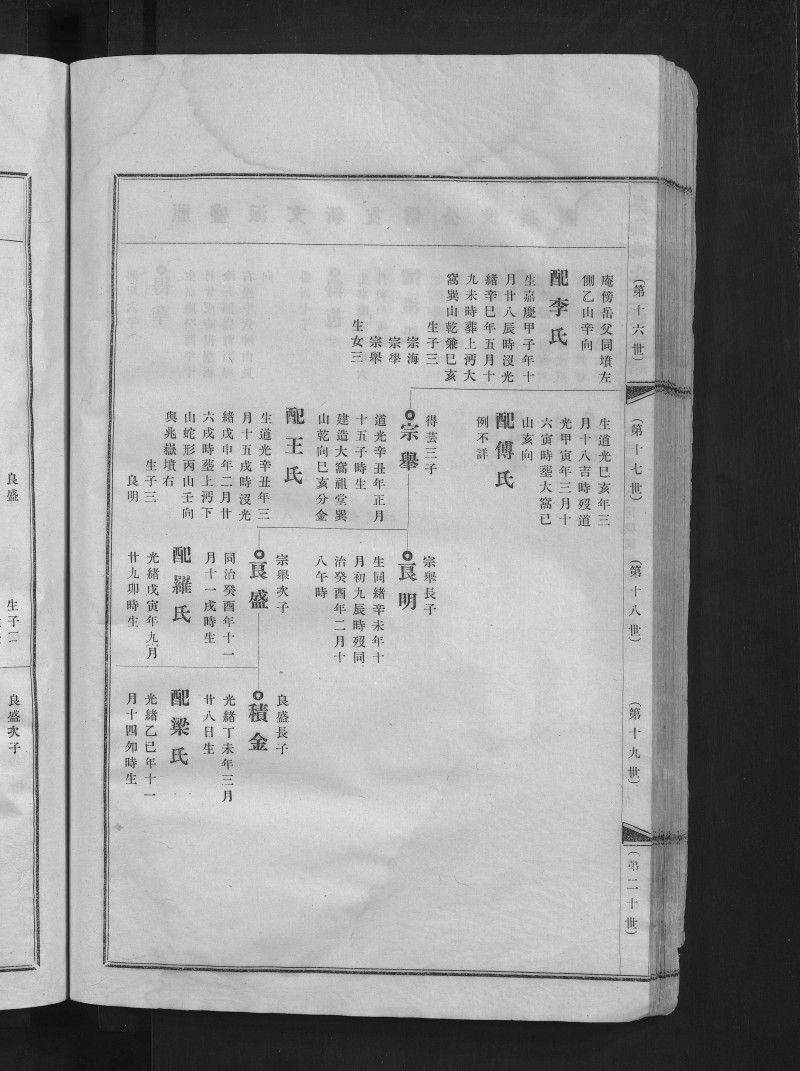 (第十六世)
庵傍岳父同墳左
側乙山辛向
配李氏
生嘉慶甲子年十
月廿八辰時沒光
緒辛巳年五月十
九未時葬上沔大
窩巽山乾兼巳亥
生子三
宗海
宗學
宗舉
生女三
(第十七世)
生道光巳亥年三
月十八吉時歿道
光甲寅年三月十
六寅時葬大窩己
山亥向
配傅氏
例不詳
得芸三子
宗舉
道光辛丑年正月
十五子時生
建造大窩祖堂巽
山乾向巳亥分金
配王氏
生道光辛丑年三
月十五戌時沒光
緒戊申年二月廿
六戌時葬上沔下
山蛇形丙山壬向
與兆嶽墳右
生子三
良明
良盛
(第十八世)
宗舉長子
良明
生同緒辛未年十
月初九辰時歿同
治癸酉年二月十
八午時
宗舉次子
良盛
同治癸酉年十一
月十一戌時生
配羅氏
光緒戊寅年九月
廿九卯時生
生子二
(第十九世)
良盛長子
積金
光緒丁未年三月
廿八日生
配梁氏
光緒乙巳年十一
月十四卯時生
良盛次子
(第二十世)